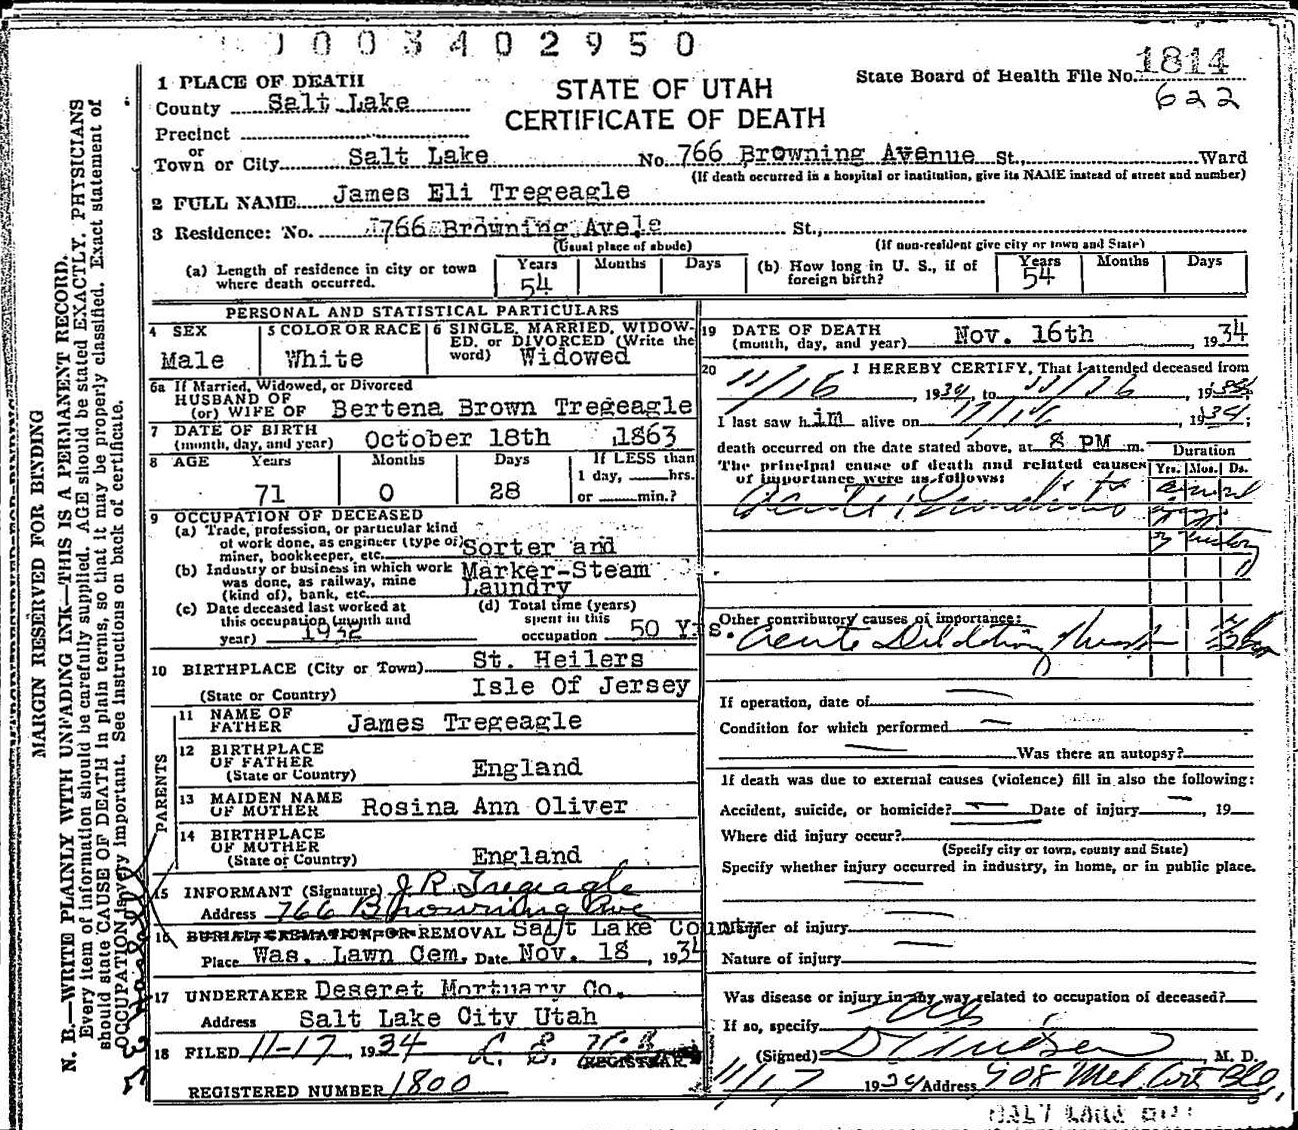 1 0 0 3 4 0 2 9 5 0
1 PLACE OF DEATH
County Salt Lake
Precinct
or
Town or City Salt Lake No. 766 Browning Avenue St., Ward
(If death occurred in a hospital or institution, give its NAME instead of street and number)
STATE OF UTAH
CERTIFICATE OF DEATH
State Board of Health File No. 1814
622
2 FULL NAME James Eli Tregeagle
3 Residence: No. 766 Browning Ave St.,
(Usual place of abode) (If non-resident give city or town and State)
(a) Length of residence in city or town where death occurred. Years 54 Months Days
(b) How long in U. S., if of foreign birth? Years 54 Months Days
PERSONAL AND STATISTICAL PARTICULARS
4 SEX Male
5 COLOR OR RACE White
6 SINGLE, MARRIED, WIDOW-
ED, or DIVORCED (Write the
word) Widowed
6a If Married, Widowed, or Divorced
HUSBAND OF
(or) WIFE OF Bertena Brown Tregeagle
7 DATE OF BIRTH
(month, day, and year) October 18th 1863
8 AGE Years Months Days If LESS than
1 day, hrs.
71 0 28 or min.?
9 OCCUPATION OF DECEASED
(a) Trade, profession, or particular kind
of work done, as engineer (type of)
miner, bookkeeper, etc. Sorter and
(b) Industry or business in which work
was done, as railway, mine
(kind of), bank, etc. Marker-Steam
Laundry
(c) Date deceased last worked at
this occupation (month and
year) 1932
(d) Total time (years)
spent in this
occupation 50 Yrs.
10 BIRTHPLACE (City or Town) St. Heilers
(State or Country) Isle Of Jersey
PARENTS
11 NAME OF
FATHER James Tregeagle
12 BIRTHPLACE
OF FATHER
(State or Country) England
13 MAIDEN NAME
OF MOTHER Rosina Ann Oliver
14 BIRTHPLACE
OF MOTHER
(State or Country) England
15 INFORMANT (Signature) J R Tregeagle
Address 766 Browning Ave
16 BURIAL, CREMATION, OR REMOVAL Salt Lake County
Place Was. Lawn Cem. Date Nov. 18, 1934
17 UNDERTAKER Deseret Mortuary Co.
Address Salt Lake City Utah
18 FILED 11-17, 1934
REGISTRAR
REGISTERED NUMBER 1800
19 DATE OF DEATH
(month, day, and year) Nov. 16th, 1934
20 I HEREBY CERTIFY, That I attended deceased from
11/16, 1934, to 11/16, 1934
I last saw him alive on 11/16, 1934;
death occurred on the date stated above, at 8 PM m.
The principal cause of death and related causes
of importance were as follows:
Duration
Yrs. Mos. Ds.
Acute
Other contributory causes of importance:
Acute Dilatation Heart
If operation, date of
Condition for which performed
Was there an autopsy?
If death was due to external causes (violence) fill in also the following:
Accident, suicide, or homicide? Date of injury, 19
Where did injury occur?
(Specify city or town, county and State)
Specify whether injury occurred in industry, in home, or in public place.
Manner of injury
Nature of injury
Was disease or injury in any way related to occupation of deceased?
No
If so, specify
(Signed) M. D.
11/17 1934 Address 908
MARGIN RESERVED FOR BINDING
N. B.—WRITE PLAINLY WITH UNFADING INK—THIS IS A PERMANENT RECORD.
Every item of information should be carefully supplied. AGE should be stated EXACTLY. PHYSICIANS
should state CAUSE OF DEATH in plain terms, so that it may be properly classified. Exact statement of
OCCUPATION is very important. See instructions on back of certificate.